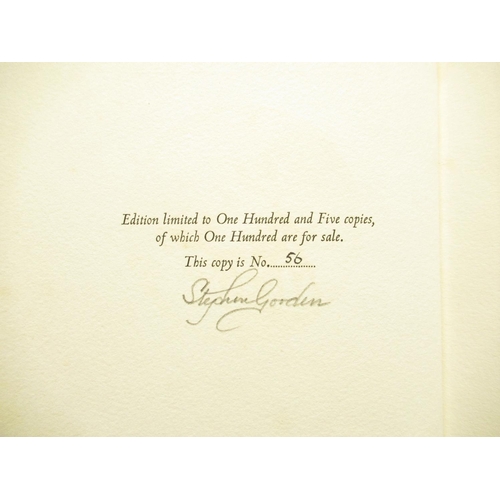 Edition limited to One Hundred and Five copies,
of which One Hundred are for sale.
This copy is No. 56
Stephen Gooden